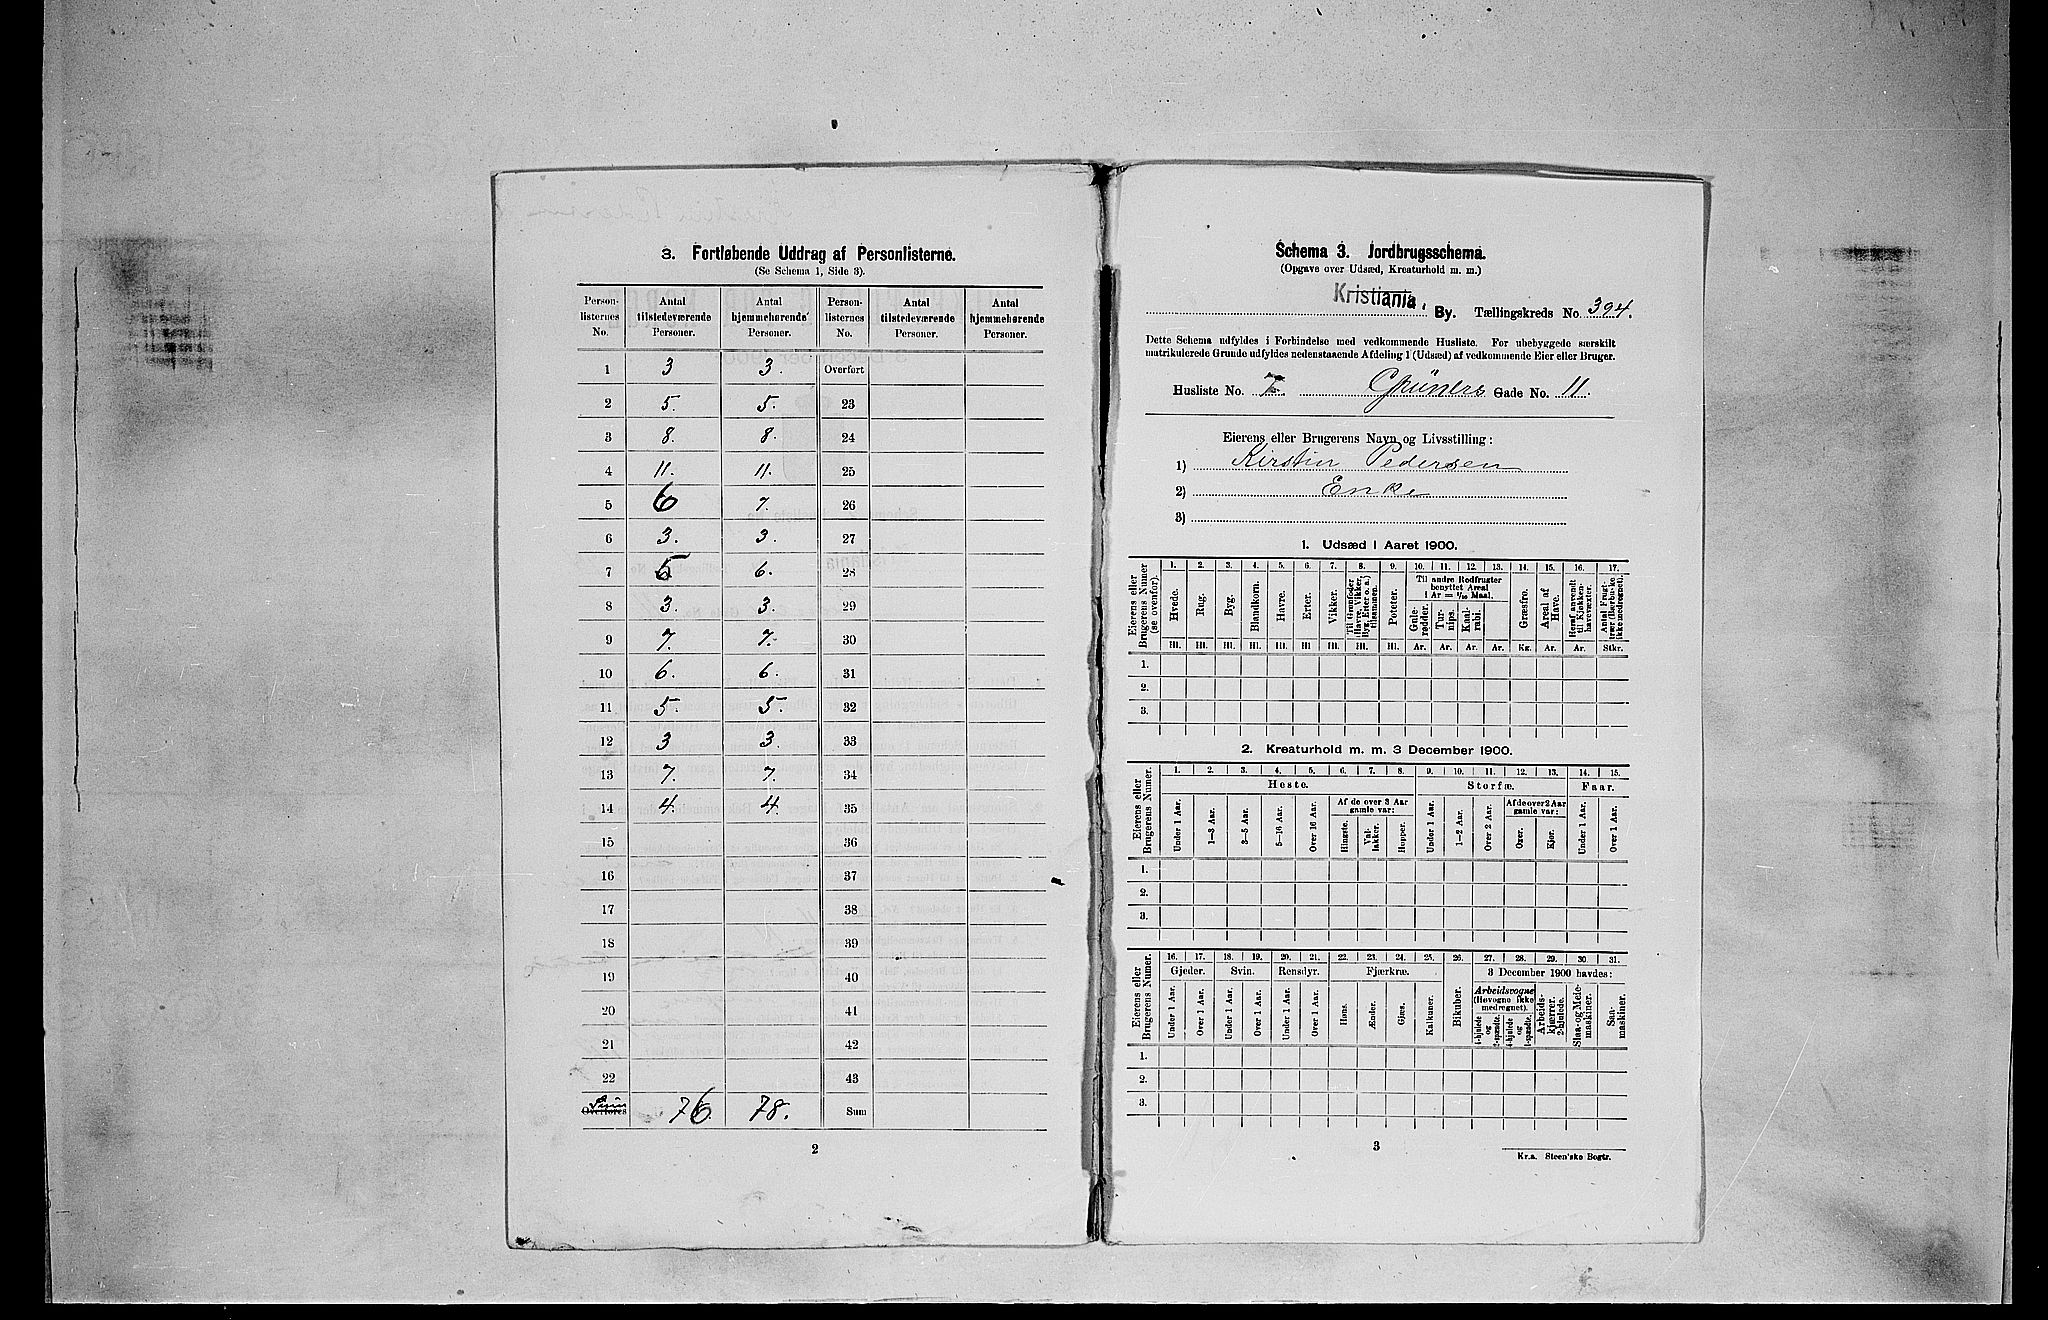 3. Fortløbende Uddrag af Personlisterne.
(Se Schema 1, Side 3).
Person-listernes No. | Antal tilstedeværende Personer. | Antal hjemmehørende Personer. | Person-listernes No. | Antal tilstedeværende Personer. | Antal hjemmehørende Personer.
1 3 3. Overført
2 5. 5. 23
3 8. 8. 24
4 11. 11. 25
5 6 7. 26
6 3. 3. 27
7 5 6. 28
8 3. 3. 29
9 7. 7. 30
10 6. 6. 31
11 5. 5. 32
12 3 3. 33
13 7. 7. 34
14 4. 4. 35
15 36
16 37
17 38
18 39
19 40
20 41
21 42
22 43
Sum
Overføres 76. 78. Sum
2
Schema 3. Jordbrugsschema.
(Opgave over Udsæd, Kreaturhold m. m.)
Kristiania, By. Tællingskreds No. 394.
Dette Schema udfyldes i Forbindelse med vedkommende Husliste. For ubebyggede særskilt
matrikulerede Grunde udfyldes nedenstaaende Afdeling 1 (Udsæd) af vedkommende Eier eller Bruger.
Husliste No. 7. Grüners Gade No. 11.
Eierens eller Brugerens Navn og Livsstilling:
1) Kirstin Pedersen
2) Enke
3)
1. Udsæd i Aaret 1900.
Eierens eller Brugerens Numer (se ovenfor).
1. 2. 3. 4. 5. 6. 7. 8. 9. 10. 11. 12. 13. 14. 15. 16. 17.
Hvede. Rug. Byg. Blandkorn. Havre. Erter. Vikker. Til Grønfoder (Havre, Vikker, Byg, Erter o. a.) tilsammen. Poteter.
Til andre Rodfrugter benyttet Areal 1 Ar = 1/10 Maal.
Gule-rødder. Tur-nips. Kaal-rabi. Græsfrø. Areal af Have. Heraf anvendt til Kjøkken-havevæxter. Antal Frugt-trær (Bærbuske ikke medregnet).
Hl. Hl. Hl. Hl. Hl. Hl. Hl. Hl. Hl. Ar. Ar. Ar. Ar. Kg. Ar. Ar. Stkr.
1.
2.
3.
2. Kreaturhold m. m. 3 December 1900.
Eierens eller Brugerens Numer.
1. 2. 3. 4. 5. 6. 7. 8. 9. 10. 11. 12. 13. 14. 15.
Heste. Storfæ. Faar.
Af de over 3 Aar gamle var: Af de over 2 Aar gamle var:
Under 1 Aar. 1—3 Aar. 3—5 Aar. 5—16 Aar. Over 16 Aar. Hingste. Val-lakker. Hopper. Under 1 Aar. 1—2 Aar. Over 2 Aar. Oxer. Kjør. Under 1 Aar. Over 1 Aar.
1.
2.
3.
Eierens eller Brugerens Numer.
16. 17. 18. 19. 20. 21. 22. 23. 24. 25. 26. 27. 28. 29. 30. 31.
Gjeder. Svin. Rensdyr. Fjærkræ. Bikuber. 3 December 1900 havdes:
Arbeidsvogne (Høvogne ikke medregnet).
Under 1 Aar. Over 1 Aar. Under 1 Aar. Over 1 Aar. Under 1 Aar. Over 1 Aar. Høns. Ænder. Gjæs. Kalkuner. 4-hjulede og 2-spændte. 4-hjulede og 1-spændte. Arbeids-kjærrer, 2-hjulede. Slaa- og Meie-maskiner. Saa-maskiner.
1.
2.
3.
3
Kr.a. Steen'ske Bogtr.